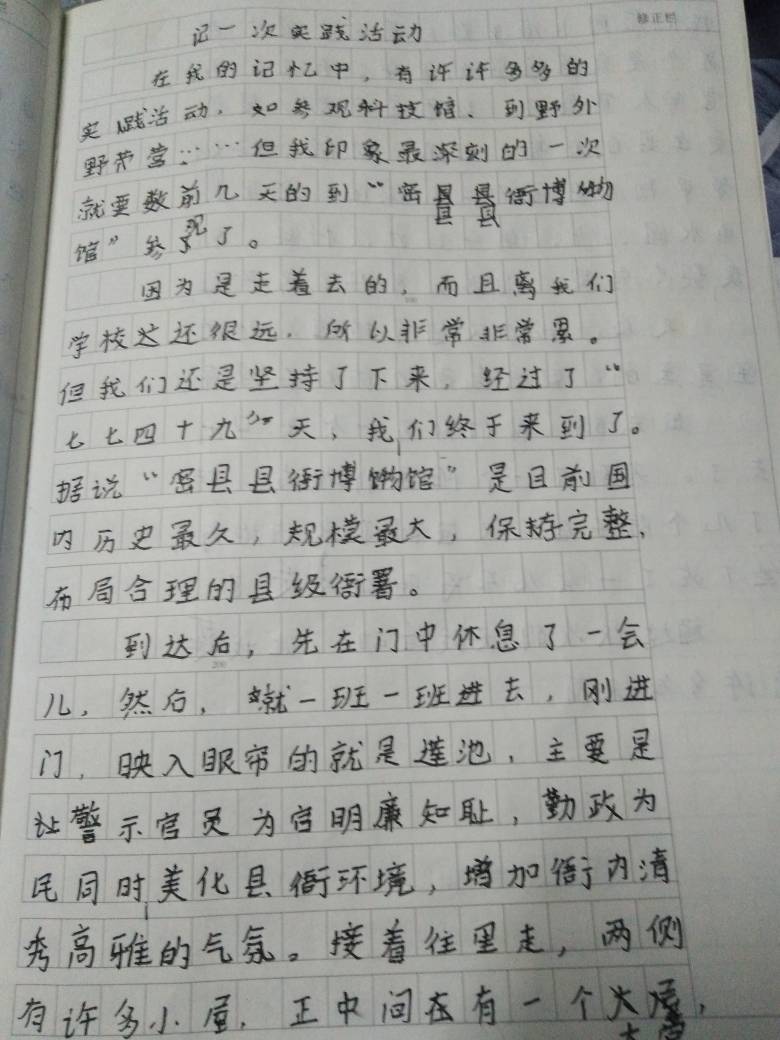 修正栏
记一次实践活动
在我的记忆中，有许许多多的
实践活动，如参观科技馆、到野外
野营……但我印象最深刻的一次
就要数前几天的到“密县县衙博物
馆”参观了。
因为是走着去的，而且离我们
学校还很远，所以非常非常累。
但我们还是坚持了下来，经过了“
七七四十九”天，我们终于来到了。
据说“密县县衙博物馆”是目前国
内历史最久，规模最大，保持完整，
布局合理的县级衙署。
到达后，先在门中休息了一会
儿，然后，就一班一班进去，刚进
门，映入眼帘的就是莲池，主要是
让警示官员为官明廉知耻，勤政为
民同时美化县衙环境，增加衙内清
秀高雅的气氛。接着往里走，两侧
有许多小屋，正中间在有一个大屋，